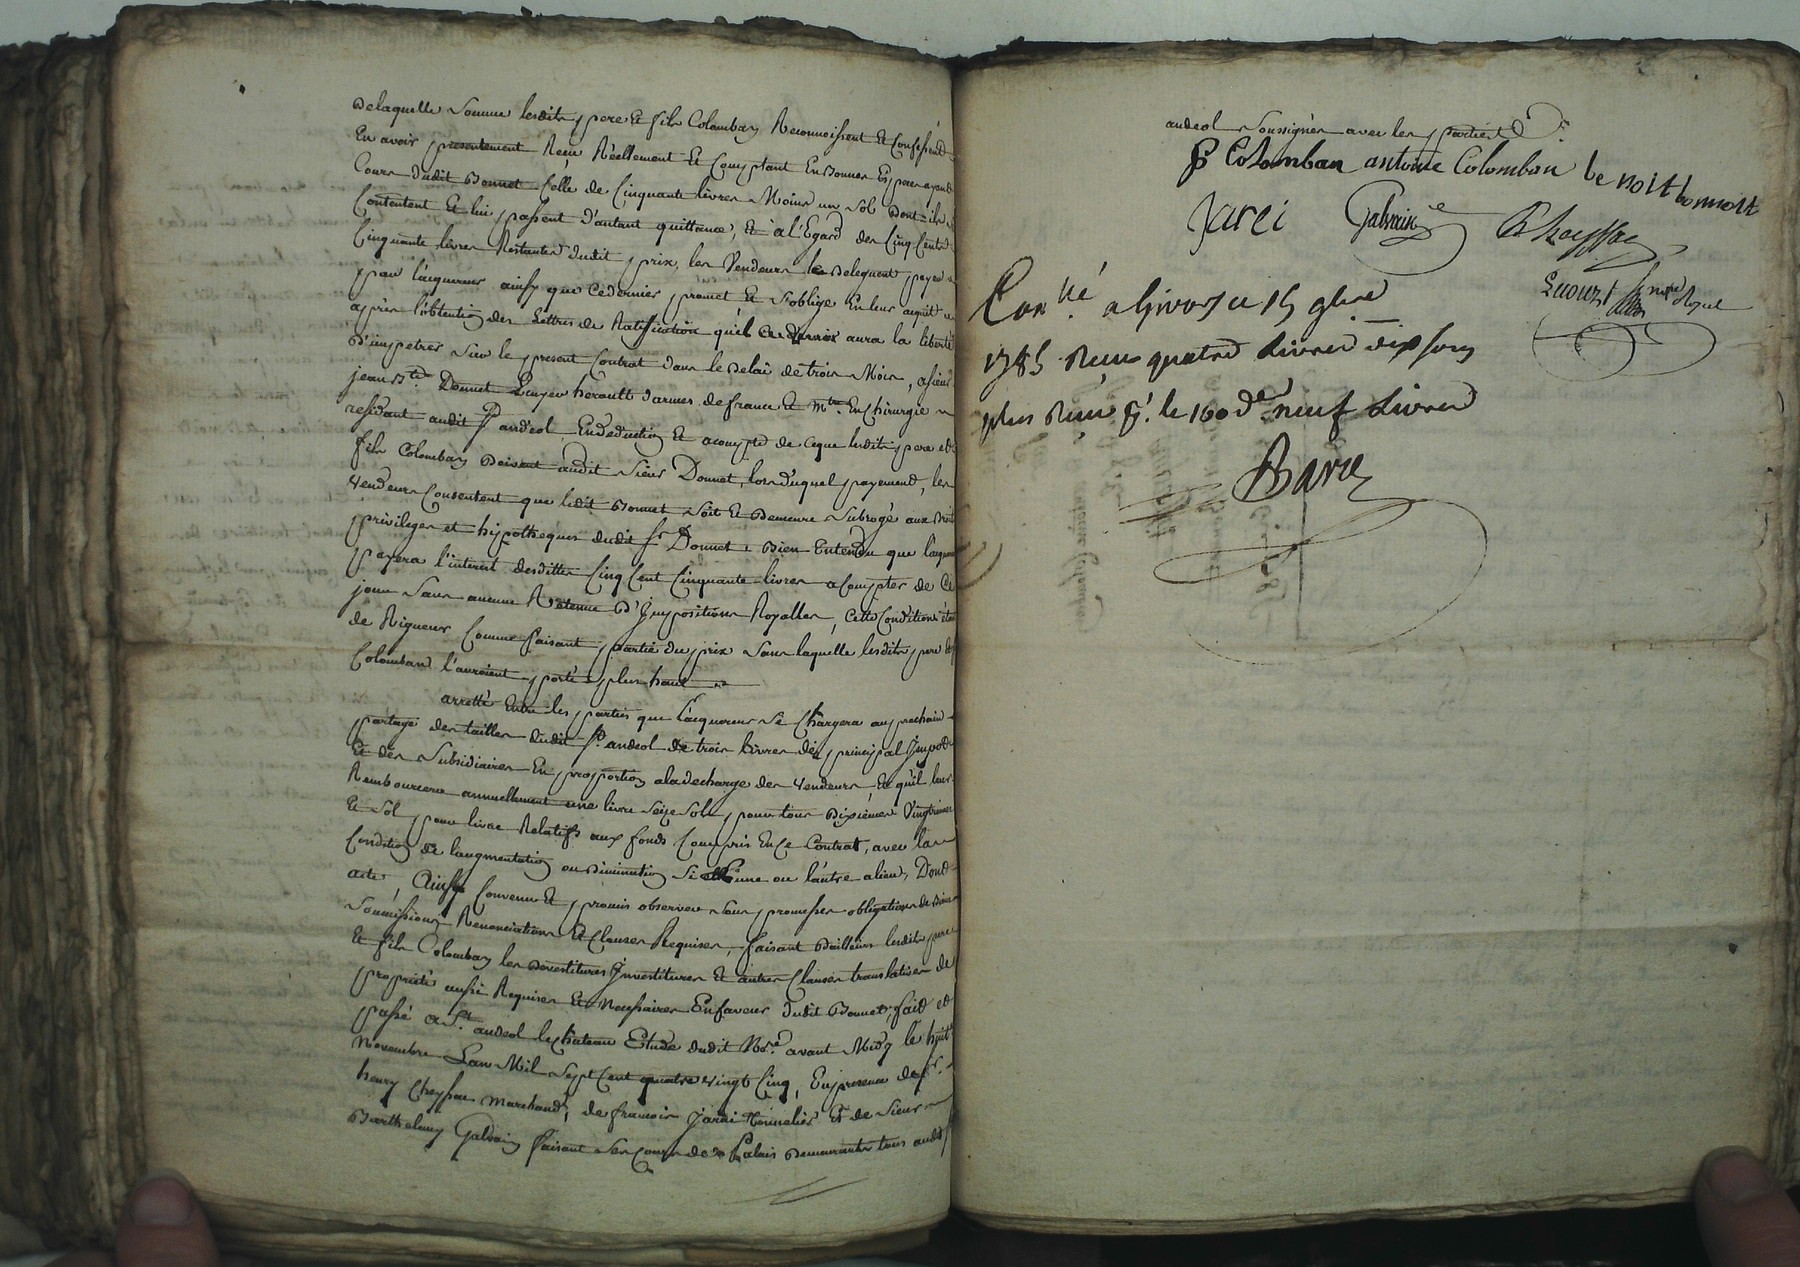 De laquelle Somme lesdits pere et fils Colomban Reconnoissent et Confessent
En avoir presentement Reçu Réellement et Comptant En Bonnes Especes ayant
Cours dudit Bonnet Celle de Cinquante livres Moins un Sol Dont ils se
Contentent et lui passent d'autant quittance, Et à l'Egard des Cinq Cents
Cinquante livres Restantes dudit prix, les Vendeurs le Deleguent payer
par l'acquereur ainsy que Ce dernier promet et S'oblige En leur acquit
après l'obtention des Lettres de Ratification qu'il aura la liberté
D'impetrer Sur le present Contrat dans le Delai de trois Mois, a Sieur
jean Bte. Donnet Ecuyer heroult d'armes de france et Mtre. En Chirurgie
residant audit St andeol En deduction et acompte de Ce que lesdits pere et
fils Colomban Doivent audit Sieur Donnet, lors duquel payement, les
Vendeurs Consentent que ledit Bonnet Soit et Demeure Subrogé aux Droits
privileges et hypotheques dudit Sr Donnet, Bien Entendu que l'acquereur
payera l'interest desdittes Cinq Cent Cinquante livres a Compter de Ce
jour Sans aucune Retenue D'Impositions Royalles, Cette Condition étant
de Rigueur Comme faisant partie du prix Sans laquelle lesdits pere et fils
Colomban l'auroient porté plus haut
arretté Entre les parties que l'acquereur Se Chargera au prochain
partage des tailles dudit St. andeol de trois livres de principal Impot
Et des Subsidiaires En proportion a la decharge des Vendeurs, Et qu'il leur
Remboursera annuellement une livre Seize Sols, pour tous Dixiémes Vingtiemes
Et Sol pour livre Relatifs aux fonds Compris En Ce Contrat, avec la
Condition de l'augmentation ou Diminution Si l'une ou l'autre a lieu, Dont
acte, Ainsy Convenu et promis observer Sous promesses obligations de Biens
Soumissions Renonciations Et Clauses Requises, faisant D'ailleurs lesdits pere
Et fils Colomban les Devestitures Investitures et autres Clauses translatives de
propriété aussi Requises Et Necessaires En faveur dudit Bonnet, fait et
passé a St. andeol le Chateau Etude dudit Nre. avant Midy le huit
Novembre L'an Mil Sept Cent quatre vingt Cinq, En presence de Sr.
henry Cheyssac Marchand, de francois Jarei Tonnelier Et de Sieur
Barthelemy Galvain faisant Ses Cours de Palais Demeurants tous audit St
andeol Soussignés avec les parties
Colomban antoine Colomban be noit bonnoit
Jarei Galvain Cheyssac
Royal
Conllé a Givors ce 15 9bre
1785 Reçu quatre Livres dix sous
plus Reçu pr. le 100de neuf Livres